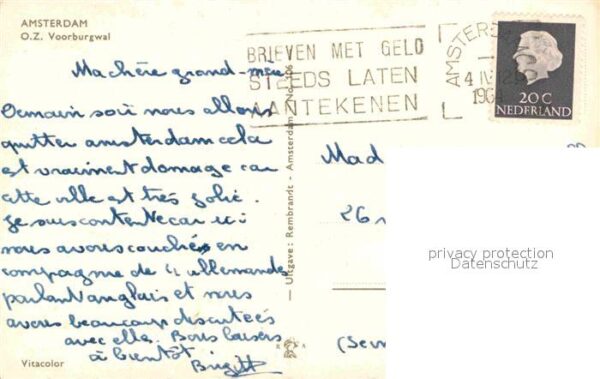 AMSTERDAM
O.Z. Voorburgwal
Ma chère grand-mère
Demain soir nous allons
quitter amsterdam cela
est vraiment domage car
cette ville est très jolie.
Je suis contente car ici
nous avons couchées en
compagnie de 4 allemandes
parlant anglais et nous
avons beaucoup discutées
avec elle. Bons baisers
à bientôt
Brigitt
Vitacolor
Uitgave: Rembrandt - Amsterdam No. 106
BRIEVEN MET GELD
STEEDS LATEN
AANTEKENEN
AMSTERDAM
4 IV
1964
20 C
NEDERLAND
Mad
26
(Sei
privacy protection
Datenschutz